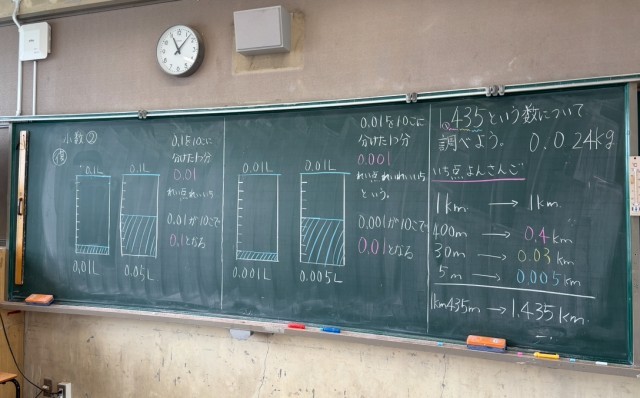 小数②
復
0.1L 0.1L
0.01L 0.05L
0.1を10こに
分けた1つ分
0.01
れい点れいいち
0.01が10こで
0.1となる
0.01L 0.01L
0.001L 0.005L
0.01を10こに
分けた1つ分
0.001
れい点れいれいいち
という。
0.001が10こで
0.01となる
1.435という数について
調べよう。 0.024kg
いち点よんさんご
1km → 1km
400m → 0.4km
30m → 0.03km
5m → 0.005km
1km435m → 1.435km